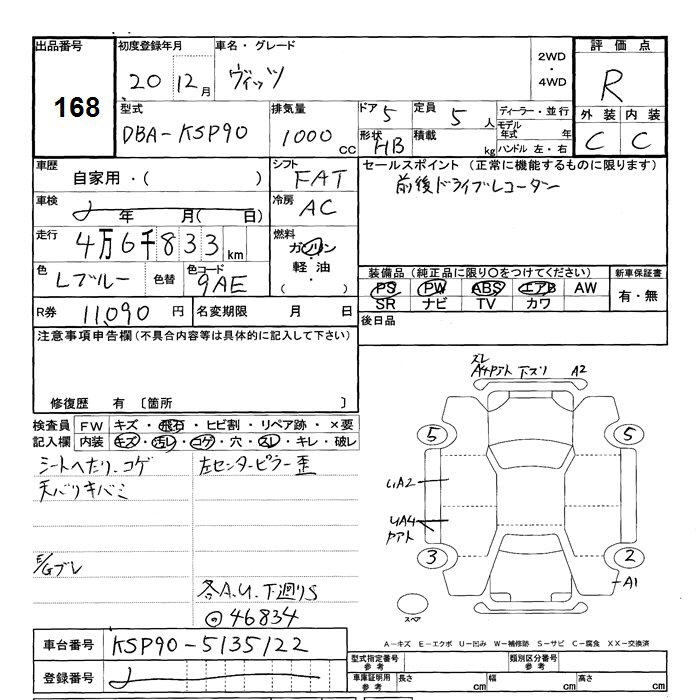 出品番号 初度登録年月 車名・グレード 2WD・4WD 評価点
168 20 12月 ヴィッツ R
型式 DBA-KSP90 排気量 1000 cc ドア 5 定員 5 人 ディーラー・並行
形状 HB 積載 kg モデル年式 年 ハンドル 左・右
外装 内装
C C
車歴 自家用・( ) シフト FAT セールスポイント (正常に機能するものに限ります)
前後ドライブレコーダー
車検 年 月( 日) 冷房 AC
走行 4万6千833km 燃料 ガソリン・軽油( )
色 Lブルー 色替 色コード 9AE
装備品 (純正品に限り○をつけてください) 新車保証書
PS PW ABS エアB AW 有・無
SR ナビ TV カワ
R券 11,090 円 名変期限 月 日 後日品
注意事項申告欄 (不具合内容等は具体的に記入して下さい)
修復歴 有 [箇所 ]
検査員記入欄 FW キズ・飛石・ヒビ割・リペア跡・×要
内装 キズ・汚レ・コゲ・穴・スレ・キレ・破レ
シートヘたり、コゲ 左センターピラー歪
天バリキバミ
E/Gブレ
各A.U.下廻りS
46834
スレ
A4Pアト 下スリ A2
5 5
UA2
UA4
Pアト
3 2
A1
スペア
A－キズ E－エクボ U－凹み W－補修跡 S－サビ C－腐食 XX－交換済
車台番号 KSP90-5135122
登録番号
型式指定番号 参考 類別区分番号 参考
車庫証明用 参考 長さ cm 幅 cm 高さ cm